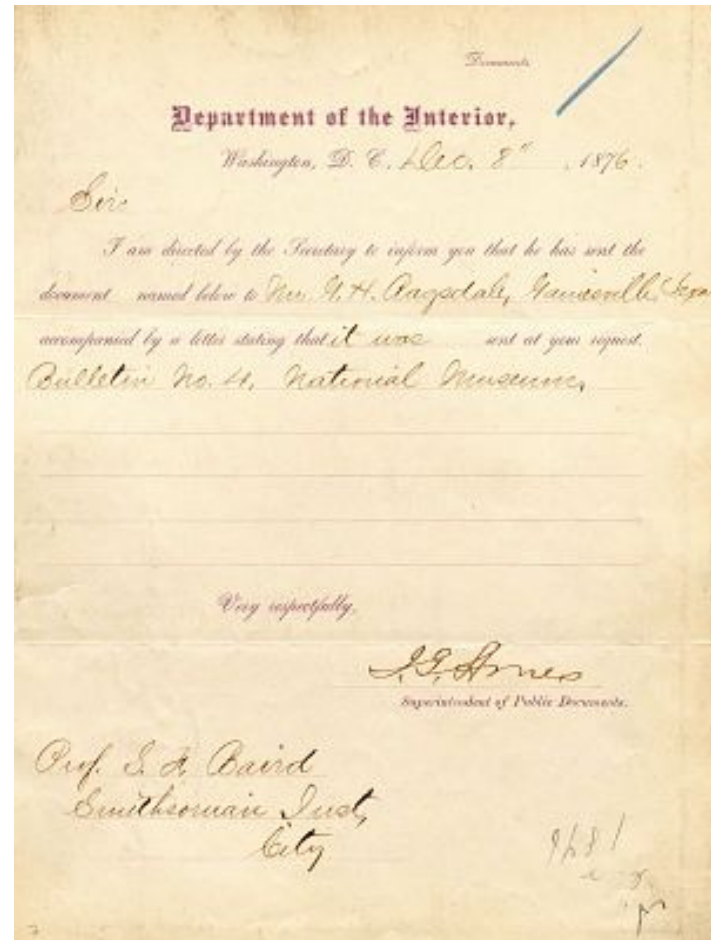 Documents
Department of the Interior,
Washington, D. C. Dec. 8", 1876.
Sir
I am directed by the Secretary to inform you that he has sent the
document named below to Mr. G. H. Ragsdale, Gainesville, Texa
accompanied by a letter stating that it was sent at your request.
Bulletin No. 4, National Museum,
Very respectfully,
Superintendent of Public Documents.
Prof. S. F. Baird
Smithsonian Inst,
City